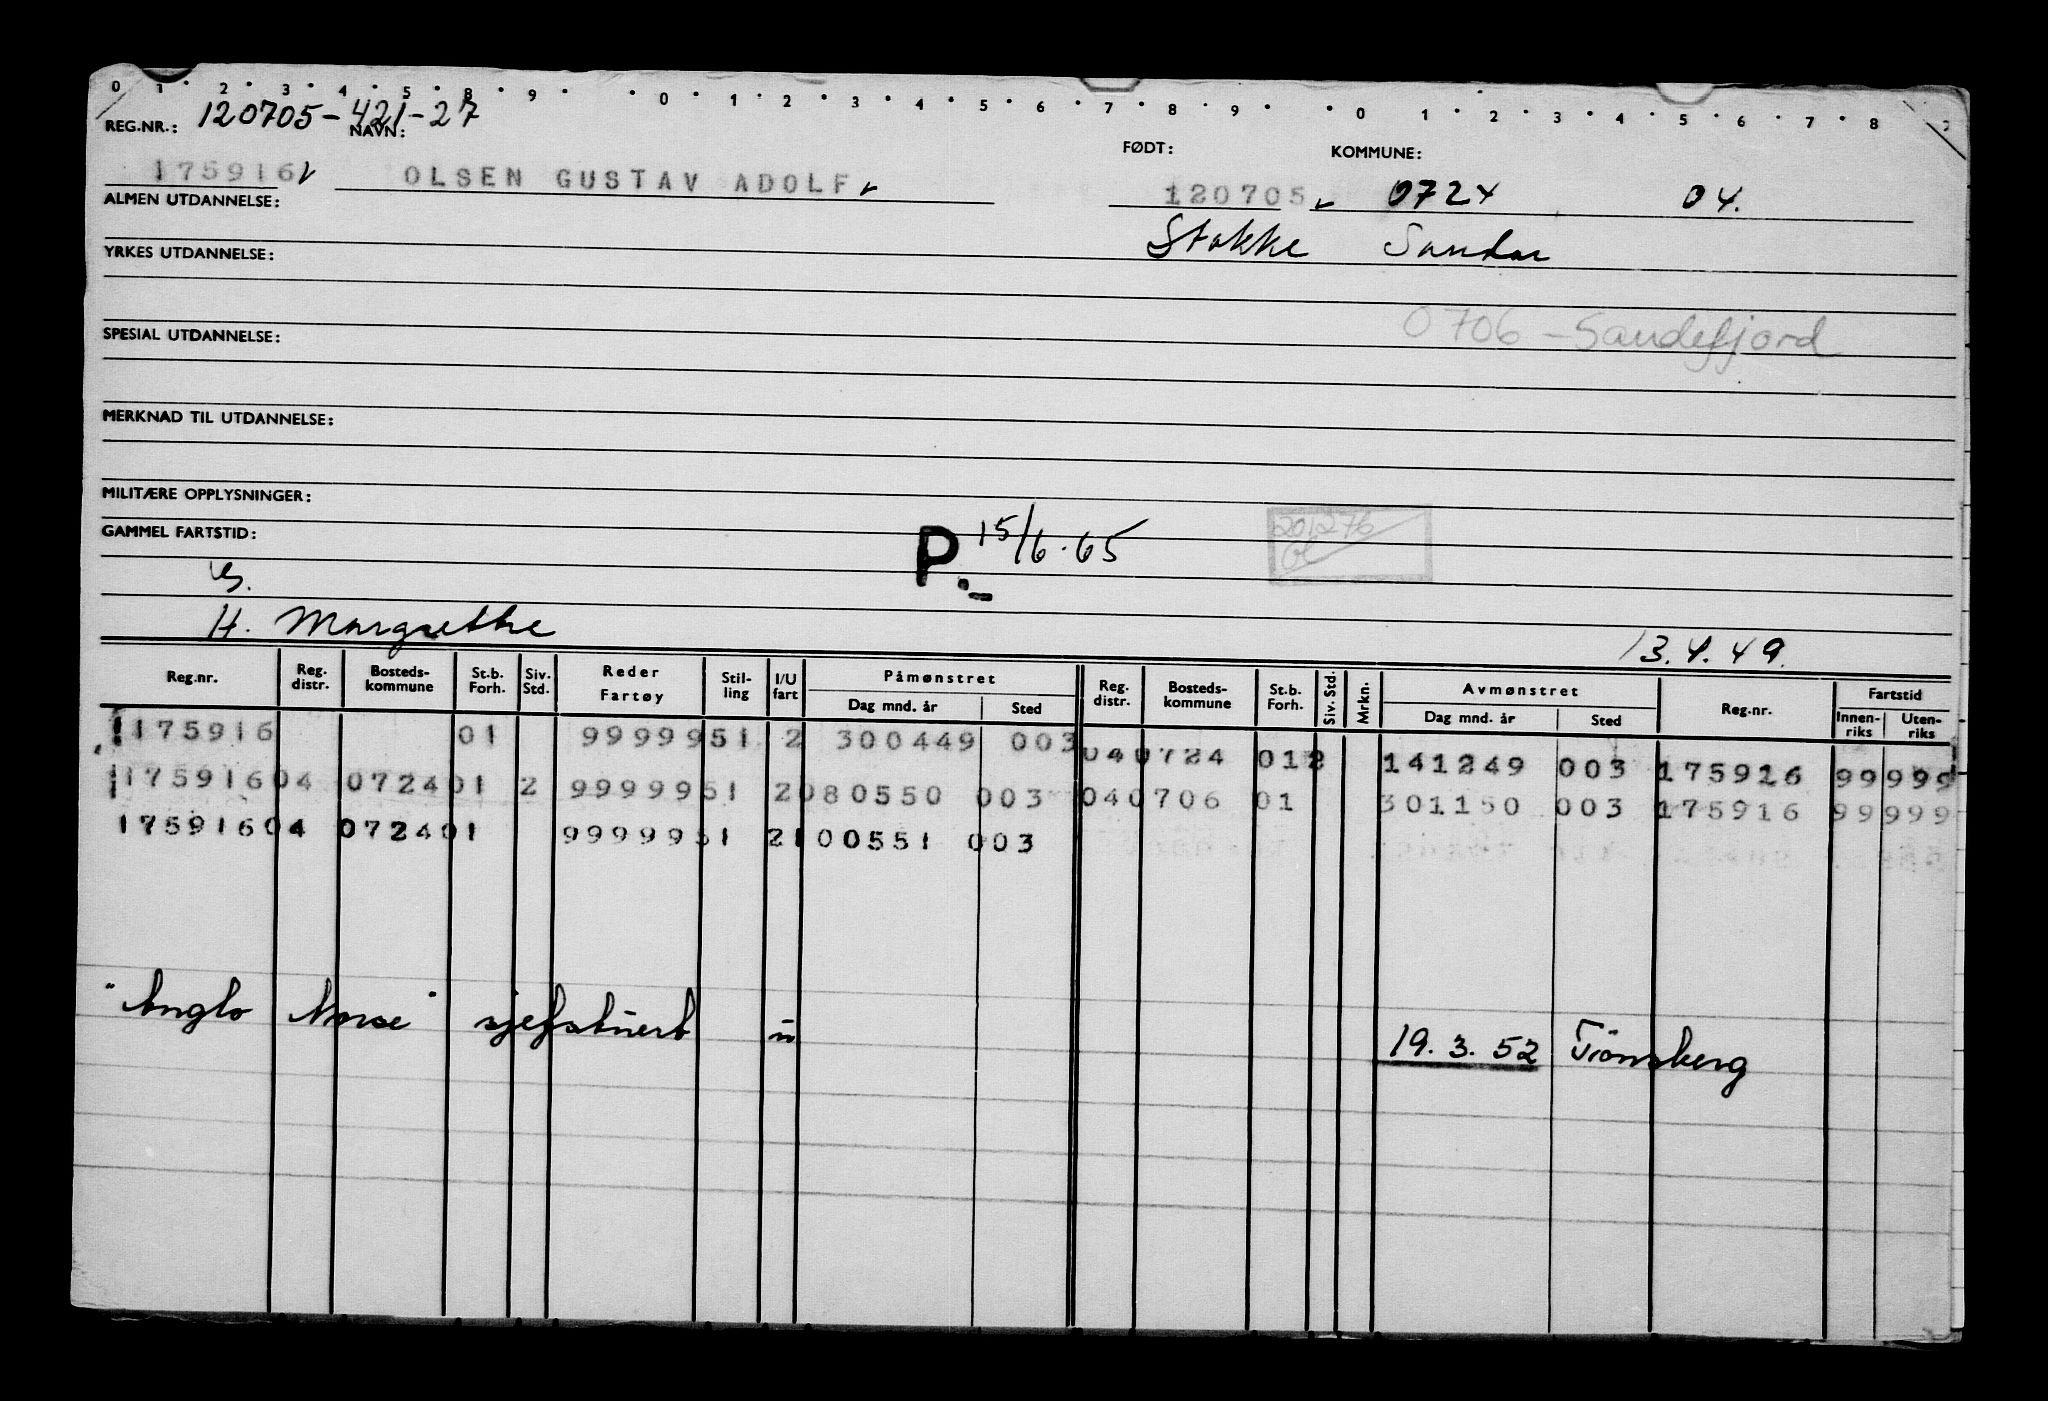 0 1 2 3 4 5 8 9 0 1 2 3 4 5 6 7 8 9 0 1 2 3 4 5 6 7 8
REG.NR.: 120705-421-27 NAVN: FØDT: KOMMUNE:
175916 OLSEN GUSTAV ADOLF 120705 0724 04.
ALMEN UTDANNELSE:
Stokke Sandar
YRKES UTDANNELSE:
0706 - Sandefjord
SPESIAL UTDANNELSE:
MERKNAD TIL UTDANNELSE:
MILITÆRE OPPLYSNINGER:
GAMMEL FARTSTID:
P. 15/6.65 201276
G.
H. Margrethe 13.4.49.
Reg.nr. Reg. distr. Bosteds-kommune St.b. Forh. Siv. Std. Reder Fartøy Stil-ling I/U fart Påmønstret Dag mnd. år Sted Reg. distr. Bosteds-kommune St.b. Forh. Siv. Std. Mrkn. Avmønstret Dag mnd. år Sted Reg.nr. Fartstid Innen-riks Uten-riks
175916 01 9999951 2 300449 003 040724 012 141249 003 175916 99999
17591604 072401 2 9999951 2080550 003 040706 01 301150 003 175916 99999
17591604 072401 9999951 2100551 003
"Anglo Norse" sjefstuert u 19.3.52 Tönsberg